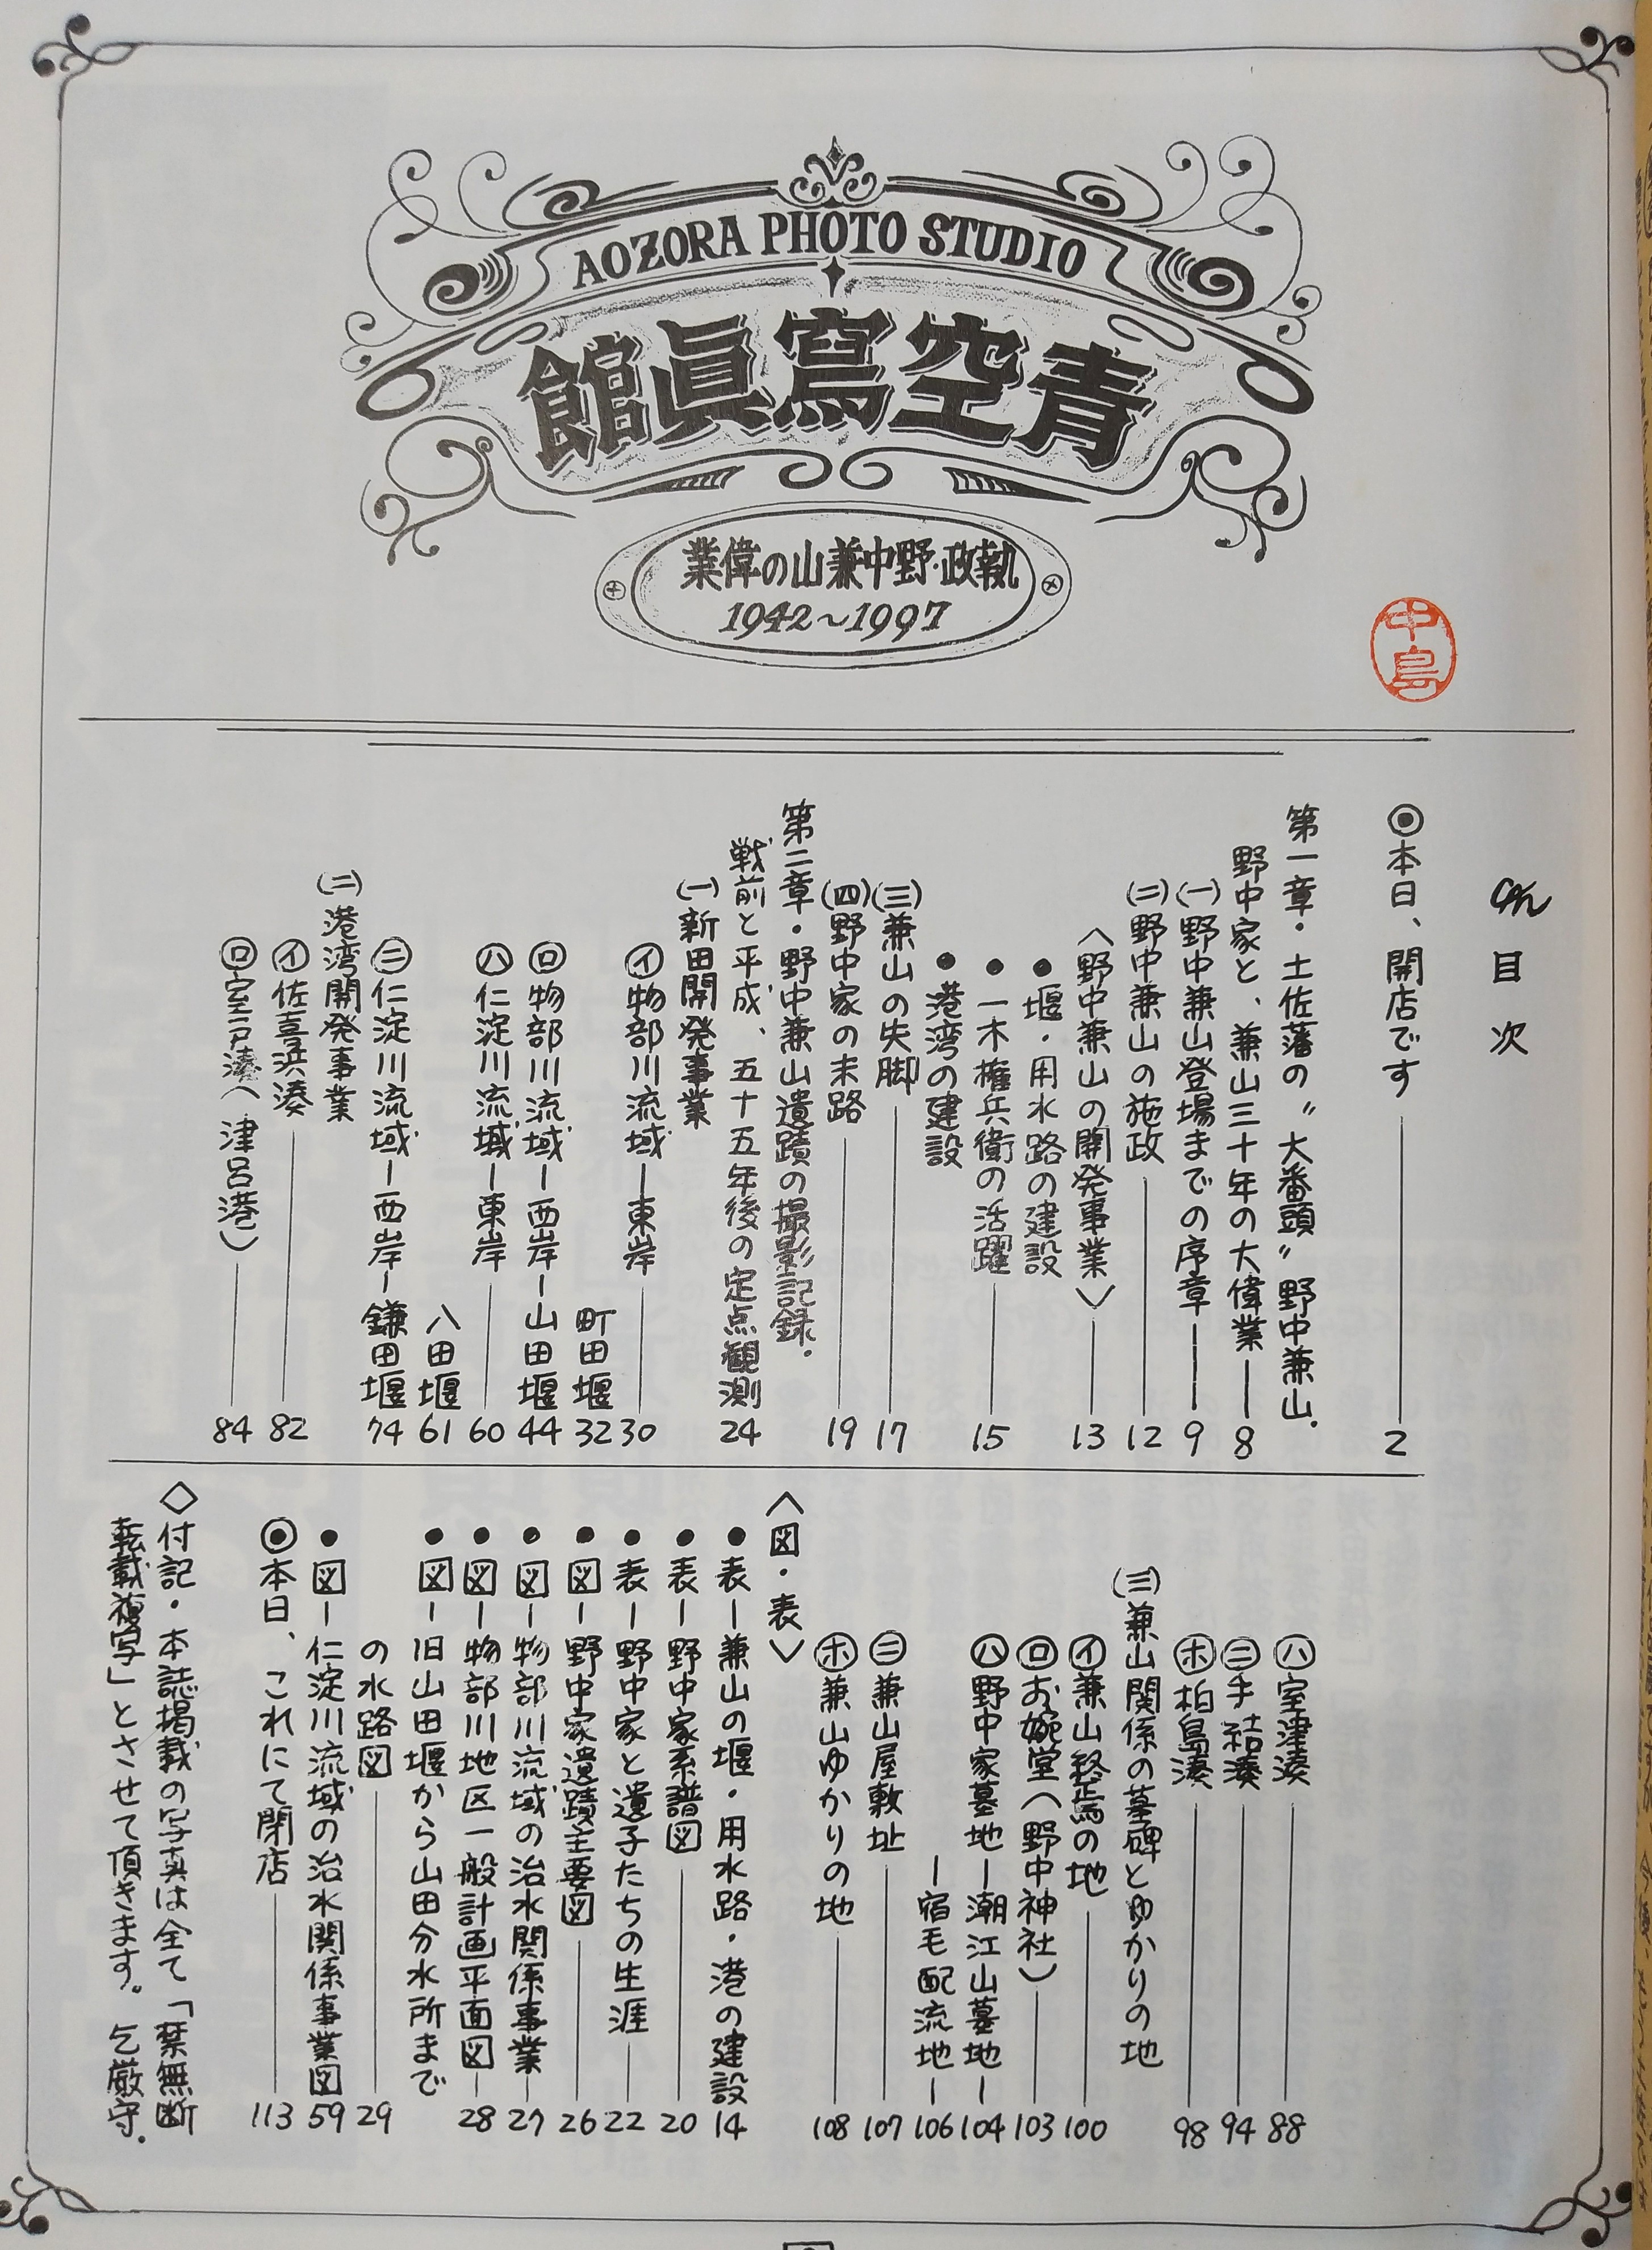 AOZORA PHOTO STUDIO
館眞寫空青
業偉の山兼中野・政執
1942〜1997
中島
目次
◉本日、開店です 2
第一章・土佐藩の〝大番頭〟野中兼山.
野中家と、兼山三十年の大偉業 8
(一)野中兼山登場までの序章 9
(二)野中兼山の施政 12
〈野中兼山の開発事業〉 13
●堰・用水路の建設
●一木権兵衛の活躍 15
●港湾の建設
(三)兼山の失脚 17
(四)野中家の末路 19
第二章・野中兼山遺蹟の撮影記録.
戦前と平成、五十五年後の定点観測 24
(一)新田開発事業
㋑物部川流域ー東岸 30
町田堰 32
㋺物部川流域ー西岸ー山田堰 44
㋩仁淀川流域ー東岸 60
八田堰 61
㊁仁淀川流域ー西岸ー鎌田堰 74
(二)港湾開発事業
㋑佐喜浜湊 82
㋺室戸湊(津呂港) 84
㋩室津湊 88
㊁手結湊 94
㋭柏島湊 98
(三)兼山関係の墓碑とゆかりの地
㋑兼山終焉の地 100
㋺お婉堂(野中神社) 103
㋩野中家墓地ー潮江山墓地ー 104
ー宿毛配流地ー 106
㊁兼山屋敷址 107
㋭兼山ゆかりの地 108
〈図・表〉
●表ー兼山の堰・用水路・港の建設 14
●表ー野中家系譜図 20
●表ー野中家と遺子たちの生涯 22
●図ー野中家遺蹟主要図 26
●図ー物部川流域の治水関係事業ー 27
●図ー物部川地区一般計画平面図ー 28
●図ー旧山田堰から山田分水所まで
の水路図 29
●図ー仁淀川流域の治水関係事業図 59
◉本日、これにて閉店 113
◇付記・本誌掲載の写真は全て「禁無断
転載複写」とさせて頂きます。乞厳守.